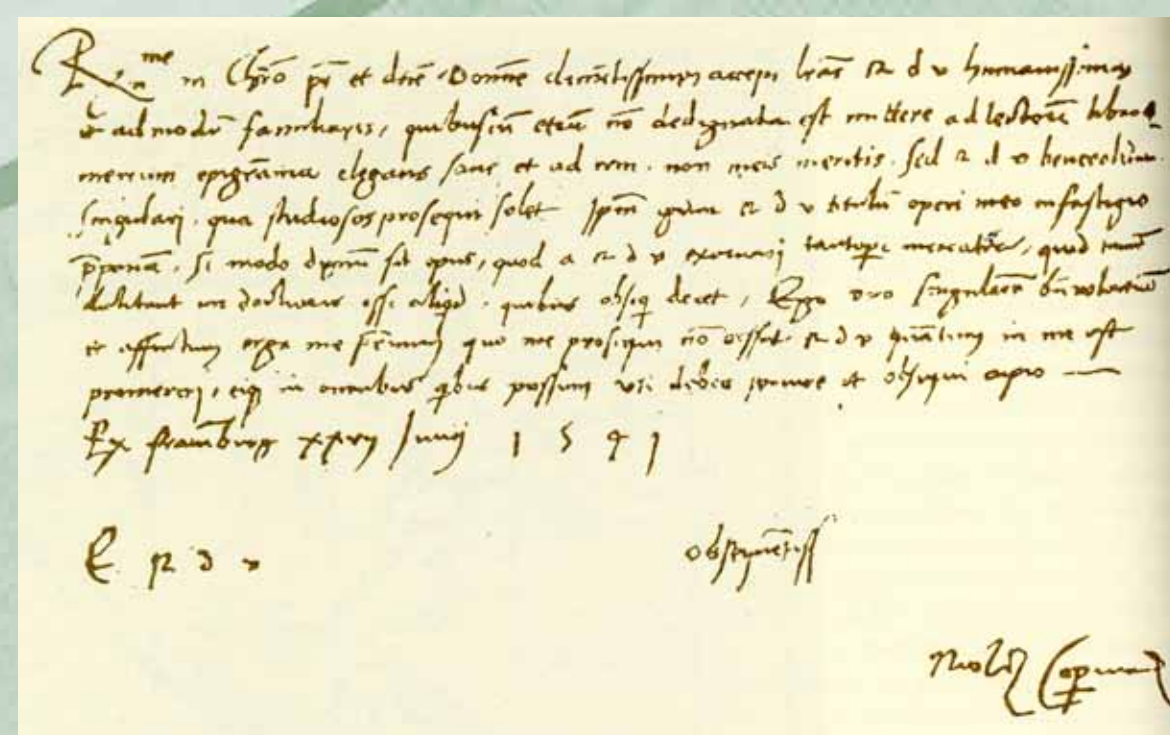 R.me in Chro pr et dne Domine clementissime accepi lras R d v humanissimas
et admodum familiares, quibuscum etiam no dedignata est mittere ad lectorem libror
meorum epigrama elegans sane et ad rem. non meis meritis. sed R d v benevolentia
singulari. qua studiosos prosequi solet Ipsum R d v titulum operi meo in fastigio
si modo dignum sit opus, quod a R d v exornari tantopere mereatur, quod tamen
dictitant me doctiores esse aliqd. quibus obsequi decet, Ego vero singularem
et affectum erga me quo me prosequi no cessat R d v quantum in me est
promereri, eiq in omnibus qbus possum uti debeo servire et obsequi cupio
Ex Frauenburg xxvij Junij 1541
E. R d v
observantiss
Nicolaus Copernicus